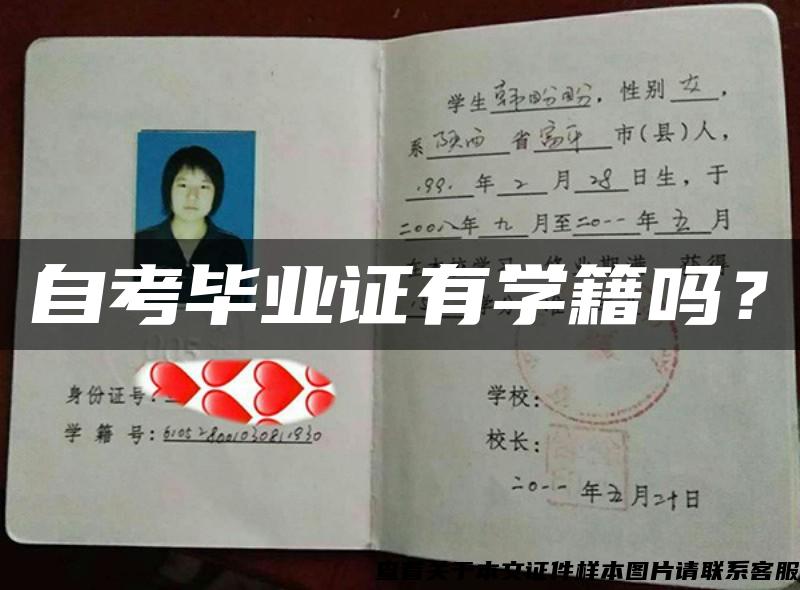 学生韩盼盼,性别女,
系陕西省富平市(县)人,
1991年2月28日生,于
二00八年九月至二0一一年五月
自考毕业证有学籍吗？
身份证号:
学籍号:
学校:
校长:
二0一一年五月二十日
查看关于本文证件样本图片请联系客服